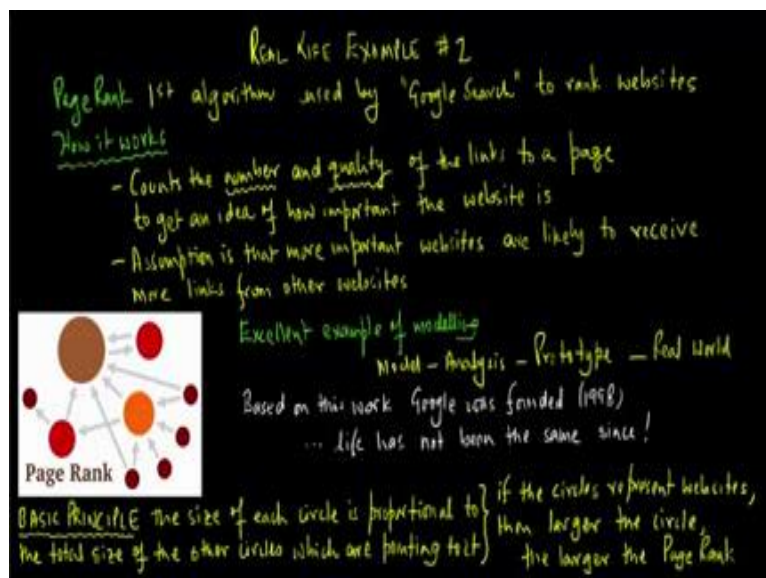 REAL LIFE EXAMPLE #2
PageRank 1st algorithm used by "Google Search" to rank websites
How it works
- Counts the number and quality of the links to a page
to get an idea of how important the website is
- Assumption is that more important websites are likely to receive
more links from other websites
Excellent example of modelling
Model - Analysis - Prototype - Real World
Based on this work Google was founded (1998)
... life has not been the same since!
Page Rank
BASIC PRINCIPLE The size of each circle is proportional to
the total size of the other circles which are pointing to it
if the circles represent websites,
then larger the circle,
the larger the Page Rank